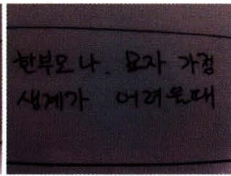 한부모나. 모자 가정
생계가 어려울때